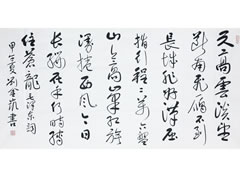 天高雲淡望
斷南飛雁不到
長城非好漢屈
指行程二萬六盤
山上高峰紅旗
漫捲西風今日
長纓在手何時縛
住蒼龍 毛澤東詞
甲午夏 書